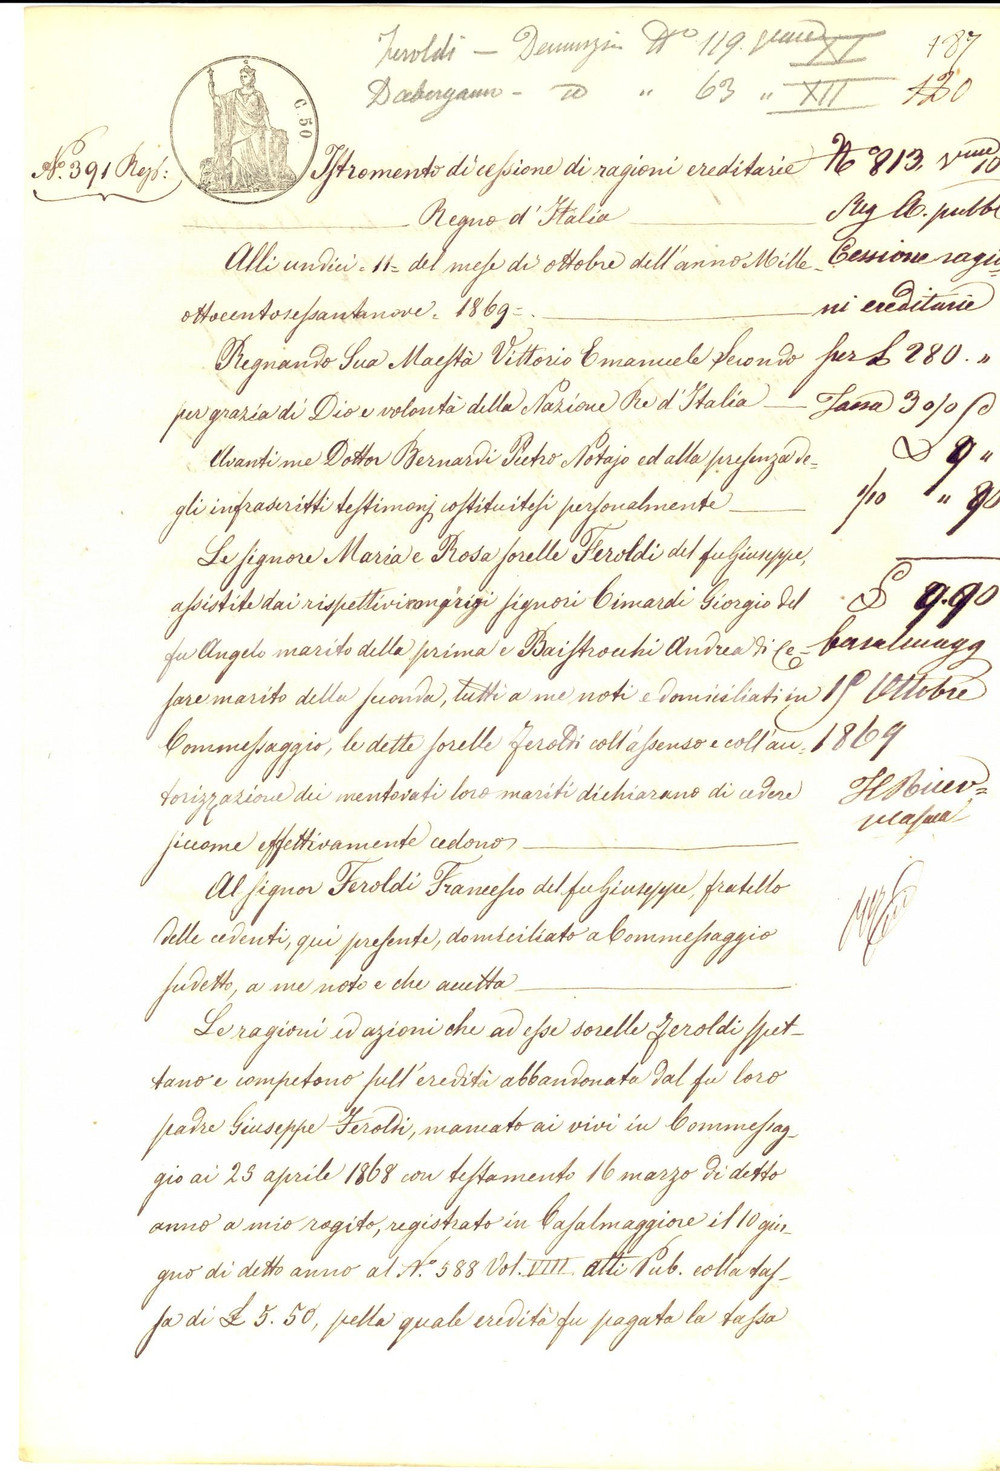 Feroldi — Denunzia N.o 119. Volume XI 187
Dabergami - id " 63 " XII 120
C. 50
N.o 391 Rep:
Istromento di cessione di ragioni ereditarie
Regno d'Italia
Alli undici = 11 = del mese di ottobre dell'anno Mille
ottocentosessantanove. 1869 =
Regnando Sua Maestà Vittorio Emanuele Secondo
per grazia di Dio e volontà della Nazione Re d'Italia
Avanti me Dottor Bernardi Pietro Notajo ed alla presenza de=
gli infrascritti testimonj costituitesi personalmente
Le signore Maria e Rosa sorelle Feroldi del fu Giuseppe,
assistite dai rispettivi signori Cimardi Giorgio del
fu Angelo marito della prima e Baistrocchi Andrea di Ce=
sare marito della seconda, tutti a me noti e domiciliati in
Commessaggio, le dette sorelle Feroldi coll'assenso e coll'au=
torizzazione dei mentovati loro mariti dichiarano di cedere
siccome effettivamente cedono
Al signor Feroldi Francesco del fu Giuseppe, fratello
delle cedenti, qui presente, domiciliato a Commessaggio
sudetto, a me noto e che accetta
Le ragioni ed azioni che ad esse sorelle Feroldi spet-
tano e competono sull'eredità abbandonata dal fu loro
padre Giuseppe Feroldi, mancato ai vivi in Commessag-
gio ai 23 aprile 1868 con testamento 16 marzo di detto
anno a mio rogito, registrato in Casalmaggiore il 10 giu-
gno di detto anno al N.o 588 Vol. VIII atti Pub. colla tas-
sa di £ 5. 50, pella quale eredità fu pagata la tassa
N.o 813. Vume 10
Reg A. pubb
Cessione ragio=
ni ereditarie
per £ 280. "
Tassa 3 o/o
£ 9 "
1/10 " 90
£ 9.90
Casalmagg
15 Ottobre
1869
Il Ricev=